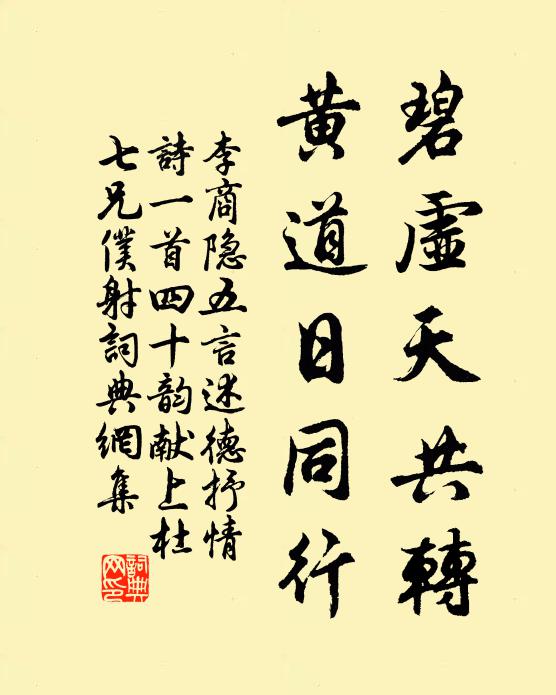 碧虛天共轉
黃道日同行
李商隐五言述德抒情
詩一首四十韵献上杜
七兄僕射詞典網集
詞典網印